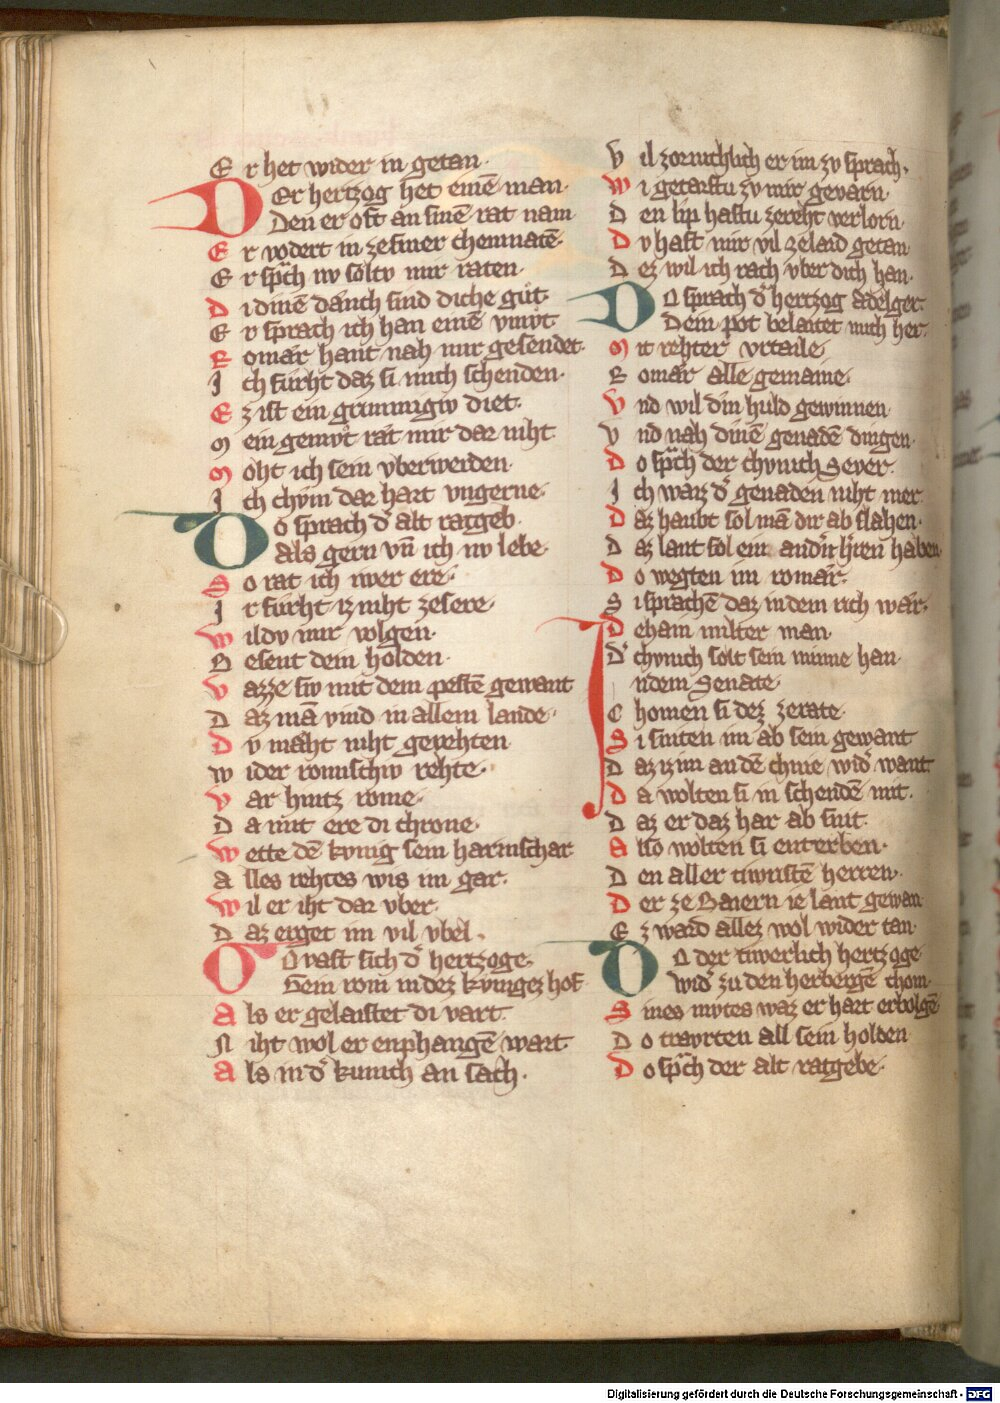 Er het wider in getan·
DEr hertzog het einē man·
Den er oft an sinē rat nam
Er vodert in ze siner chemnatē·
Er sp̄ch nv soltv mir raten·
Di dinē dauch sind diche gůt·
Er sprach ich han einē vnmvt·
Romar haut nah mir gesendet·
Ich fúrht daz si mich schenden·
Ez ist ein grimmigiv diet·
Mein gemvͦt rat mir dar niht
Moht ich sein vberwerden·
Ich chvm dar hart vngerne·
Do sprach d͛ alt ratgeb·
Als gern vn̄ ich nv lebe·
So rat ich iwer ere·
Ir fúrht iz niht ze sere·
Wildv mir volgen·
Nesent dein holden·
Vazze siv mit dem pestē gewant
Daz mā vind in allem lande·
Dv maht niht gevehten
Wider romischiv rehte·
Var hintz rome·
Da mit ere di chrone·
Wette dē kvnig sein harmschar
Alles rehtes wis im gar·
Wil er iht dar vber·
Daz erget im vil vbel·
DO vast sich d͛ hertzoge·
Gem rom in dez kvnges hof·
Als er gelaistet di vart·
Niht wol er enphangē wart·
Als in d͛ kunich an sach·
Vil zornichlich er im zv sprach·
Wi getarstu zv mir gevarn·
Den lip hastu ze reht verlorn·
Dv hast mir vil ze laid getan
Dez wil ich rach vber dich han·
DO sprach d͛ hertzog Adelger·
Dein pot belaitet mich her·
Mit rehter vrtaile
Romar alle gemaine·
Vnd wil din huld gewinnen
Vnd nah dinē genadē dingen·
Do sp̄ch der chvnich Sever·
Ich waiz d͛ genaden niht mer
Daz haubt sol mā dir ab slahen·
Daz lant sol ein and͛n h͛ren haben
Do wegten im romar·
Si sprachē daz in dem rich wár·
Deham milter man
D͛ chvnich solt sein minne han·
Indem Senate·
Chomen si dez ze rate·
Si sniten im ab sein gewant
Daz iz im an dē chnie wid͛ want
Da wolten si in schendē mit·
Daz er daz har ab snit·
Also wolten si enterben·
Den aller tiwristē herren·
Der ze Baiern ie lant gewan
Ez ward allez wol wider tan·
DO der tiwerlich hertzoge
Wid͛ zu den herbergē chom·
Sines mvtes waz er hart erbolgē
Do travrten all sein holden
Do sp̄ch der alt ratgebe·
Digitalisierung gefördert durch die Deutsche Forschungsgemeinschaft - DFG